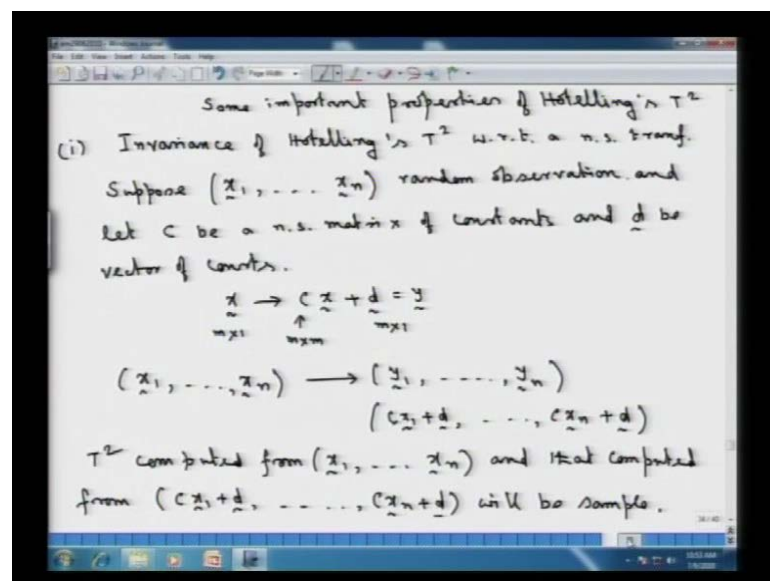 File Edit View Insert Actions Tools Help
Page Width
Some important properties of Hotelling's T²
(i) Invariance of Hotelling's T² w.r.t. a n.s. transf.
Suppose (x̰₁, ... x̰ₙ) random observation and
let C be a n.s. matrix of constants and d̰ be
vector of consts.
x̰ → C x̰ + d̰ = y̰
m×1 ↑ m×1
m×m
(x̰₁, ..., x̰ₙ) → (y̰₁, ...., y̰ₙ)
(Cx̰₁+d̰, ...., Cx̰ₙ+d̰)
T² computed from (x̰₁, ... x̰ₙ) and that computed
from (Cx̰₁+d̰, ....., Cx̰ₙ+d̰) will be sample.
10:53 AM